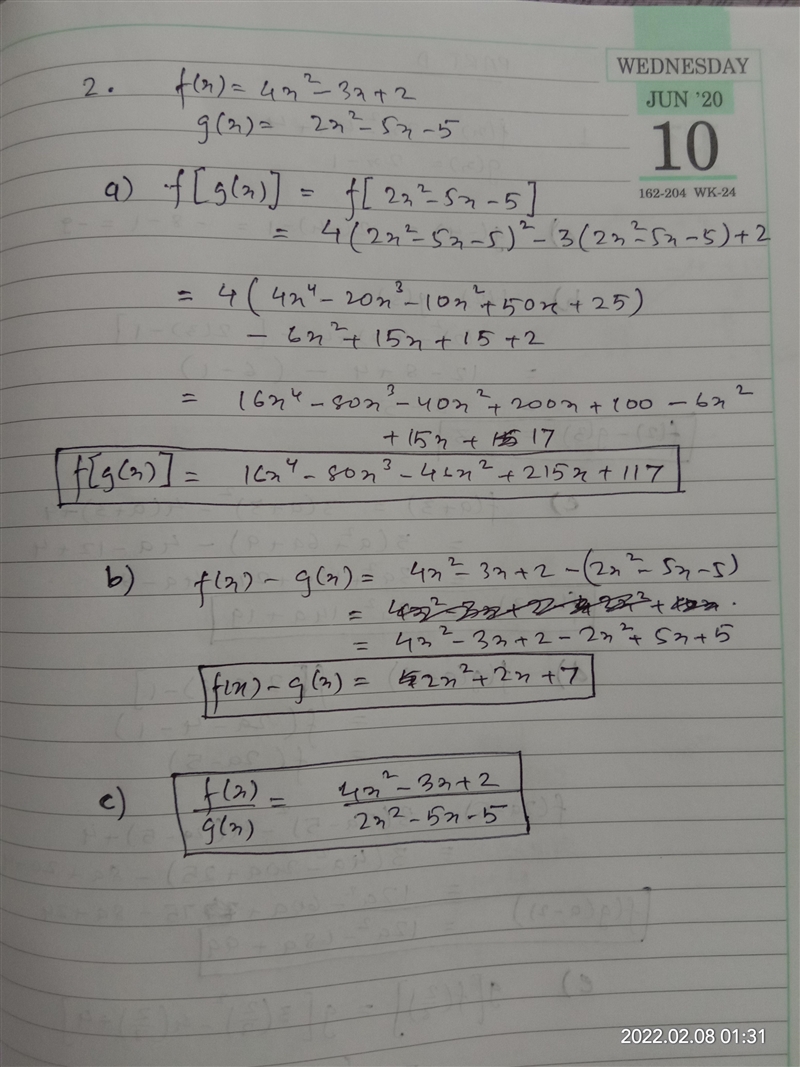 WEDNESDAY
JUN '20
10
162-204 WK-24
2. f(x) = 4x² - 3x + 2
g(x) = 2x² - 5x - 5
a) f[g(x)] = f[2x² - 5x - 5]
= 4(2x² - 5x - 5)² - 3(2x² - 5x - 5) + 2
= 4(4x⁴ - 20x³ - 10x² + 50x + 25)
- 6x² + 15x + 15 + 2
= 16x⁴ - 80x³ - 40x² + 200x + 100 - 6x²
+ 15x + 17
f[g(x)] = 16x⁴ - 80x³ - 46x² + 215x + 117
b) f(x) - g(x) = 4x² - 3x + 2 - (2x² - 5x - 5)
=
= 4x² - 3x + 2 - 2x² + 5x + 5
f(x) - g(x) = 2x² + 2x + 7
c) f(x)/g(x) = 4x² - 3x + 2 / 2x² - 5x - 5
2022.02.08 01:31